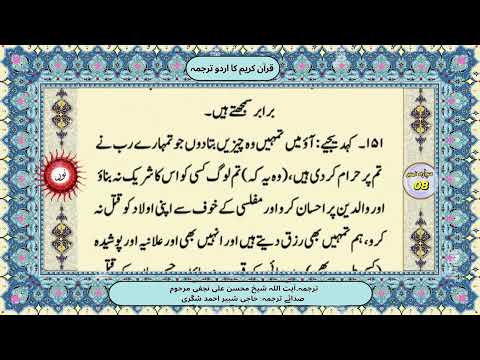 قرآن کریم کا اردو ترجمہ
برابر سمجھتے ہیں۔
۱۵۱۔ کہدیجیے: آؤ میں تمہیں وہ چیزیں بتا دوں جو تمہارے رب نے
تم پر حرام کر دی ہیں، (وہ یہ کہ) تم لوگ کسی کو اس کا شریک نہ بناؤ
اور والدین پر احسان کرو اور مفلسی کے خوف سے اپنی اولاد کو قتل نہ
کرو، ہم تمہیں بھی رزق دیتے ہیں اور انہیں بھی اور علانیہ اور پوشیدہ
08
ترجمہ۔آیت اللہ شیخ محسن علی نجفی مرحوم
صدائے ترجمہ: حاجی شبیر احمد شگری